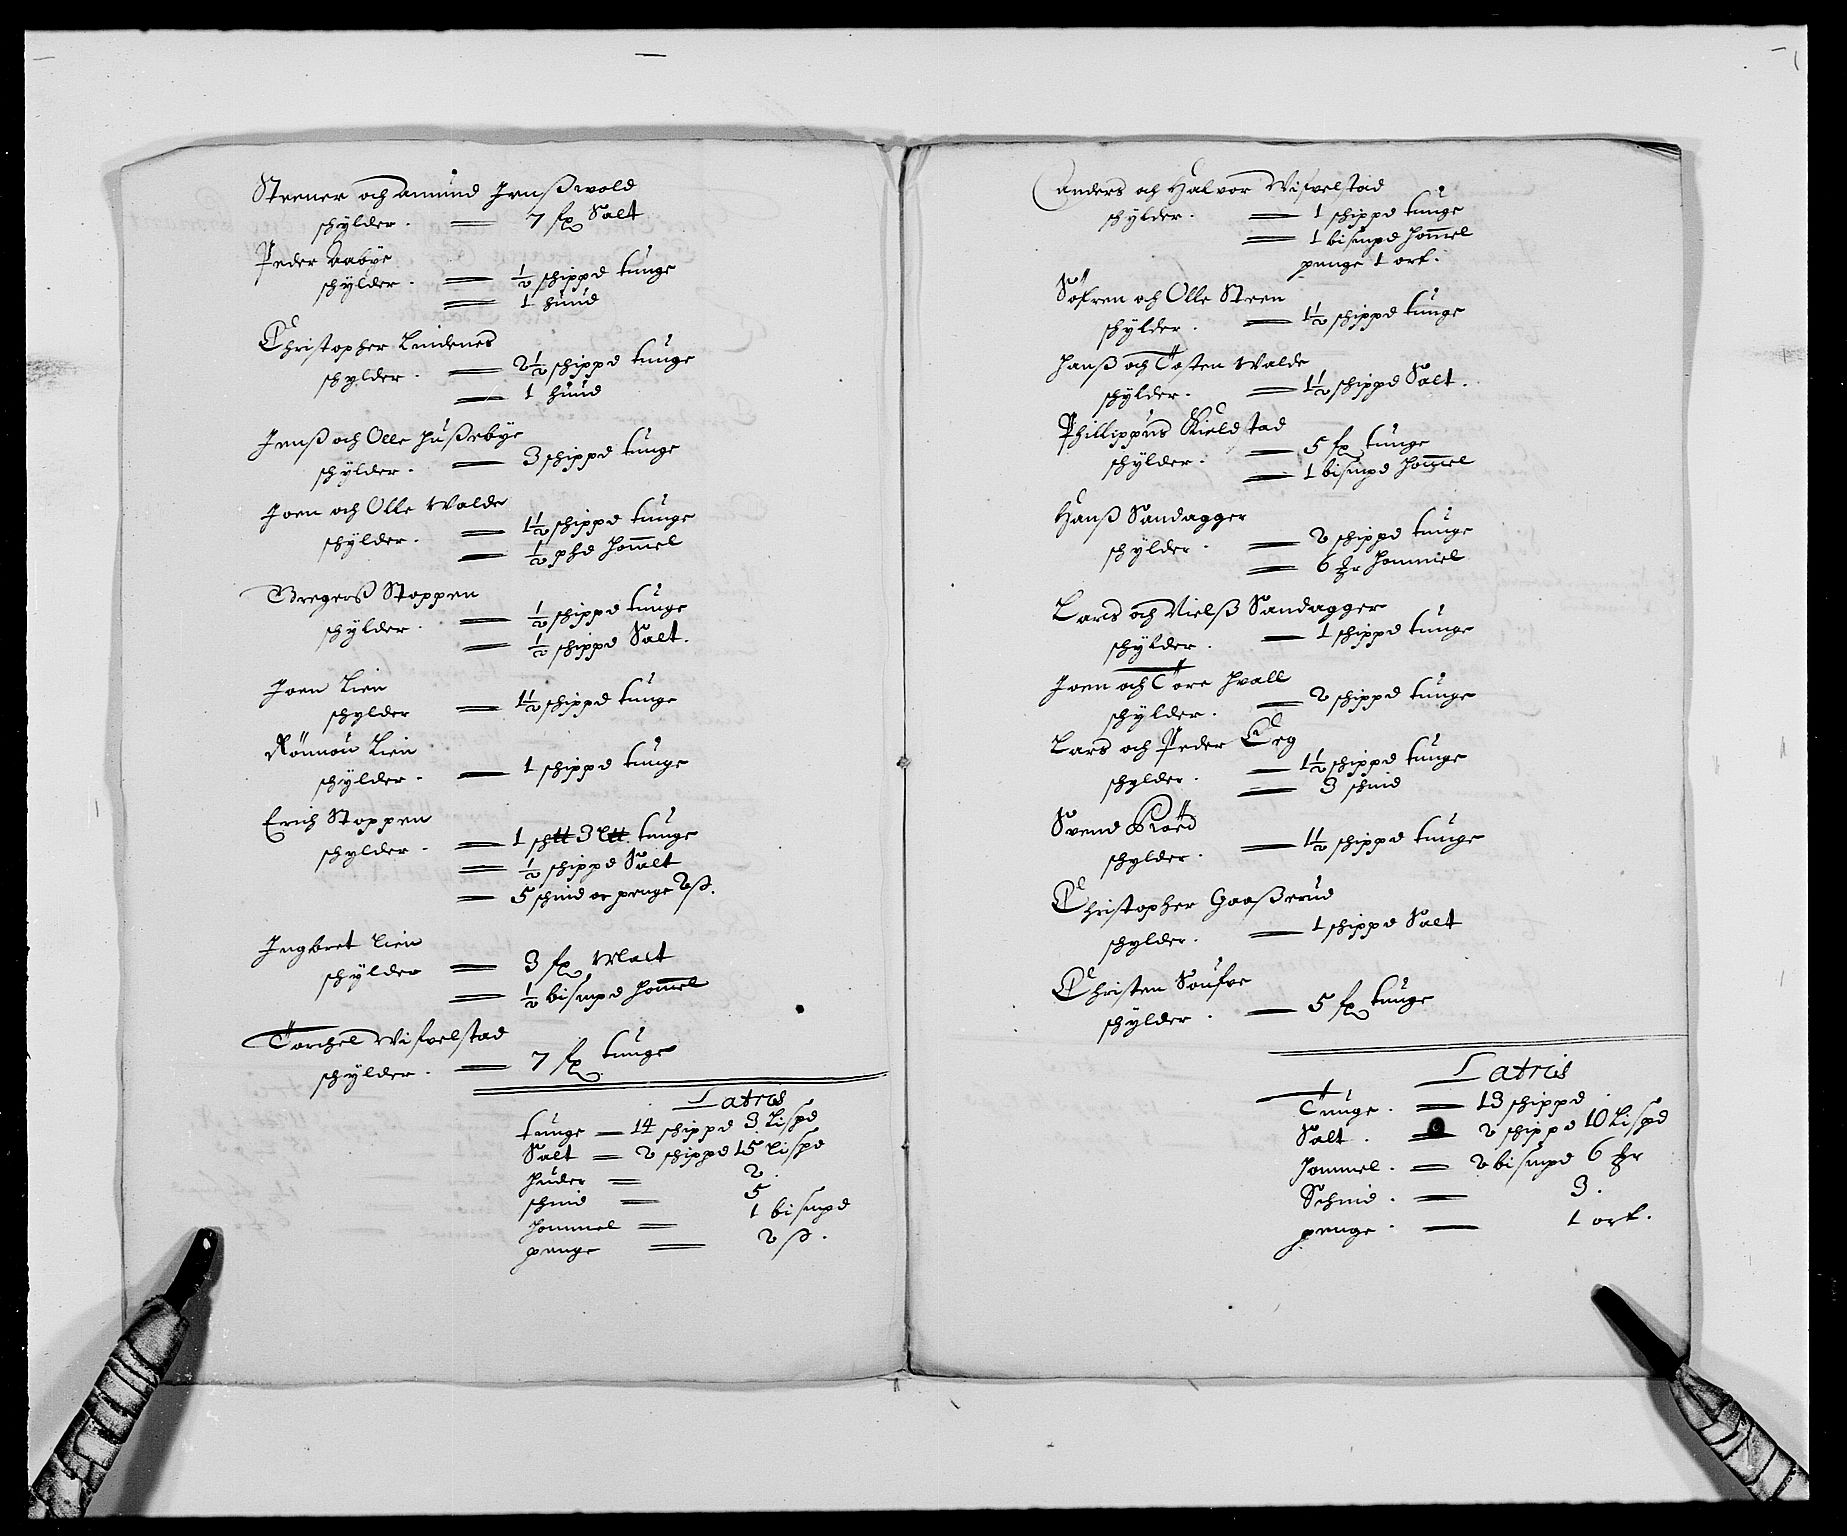 Steener och Amund Jensswold
schÿlder. — 7 fr Salt
Peder Aabÿe
schÿlder. — ½ schippd tunge
— 1 huud
Christopher Lindenes
schÿlder. — 2½ schippd tunge
— 1 huud
Jenß och Olle Hußebÿe
schÿlder. — 3 schippd tunge
Joen och Olle Walde
schÿlder. — 1½ schippd tunge
— ½ phd Hommel
Gregerß Stoppen
schÿlder. — ½ schippd tunge
— ½ schippd Salt.
Joen Lien
schÿlder — 1½ schippd tunge
Rönnou Lien
schÿlder. — 1 schippd tunge
Erich Stoppen
schÿlder. — 1 sch℔ 3 L℔ tunge
— ½ schippd Salt
— 5 schind oc penge 2 ß.
Ingbret Lien
schÿlder — 3 fr Malt
— ½ bismpd Hommel
Torchel Wifvelstad
schÿlder. — 7 fr tunge
Latris
tunge — 14 schippd 3 Lispd
Salt — 2 schippd 15 Lispd
Huder — 2.
schind — 5
Hommel — 1 bismpd
penge — 2 ß.
Anders och Halvor Wifvelstad
schÿlder. — 1 schippd tunge
— 1 bismpd Hommel
penge 1 ort.
Söfren och Olle Steen
schÿlder. — 1½ schippd tunge
Hanß och Tosten Walde
schÿlder. — 1½ schippd Salt.
Phillippus Kieldstad
schÿlder. — 5 fr tunge
— 1 bismpd Hommel
Hanß Sandagger
schÿlder. — 2 schippd tunge
— 6 Hommel
Lars och Nielß Sandagger
schÿlder. — 1 schippd tunge
Joen och Tore Hvall
schÿlder. — 2 schippd tunge
Lars och Peder Eeg
schÿlder. — 1½ schippd tunge
— 3 schind
Svend Röed
schÿlder. — 1½ schippd tunge
Christopher Gaaßerud
schÿlder. — 1 schippd Salt
Christen Soufve
schÿlder. — 5 fr tunge
Latris
Tunge. — 13 schippd
Salt. — 2 schippd 10 Lispd
Hommel. — 2 bismpd 6
Schind. — 3.
penge. — 1 ort.